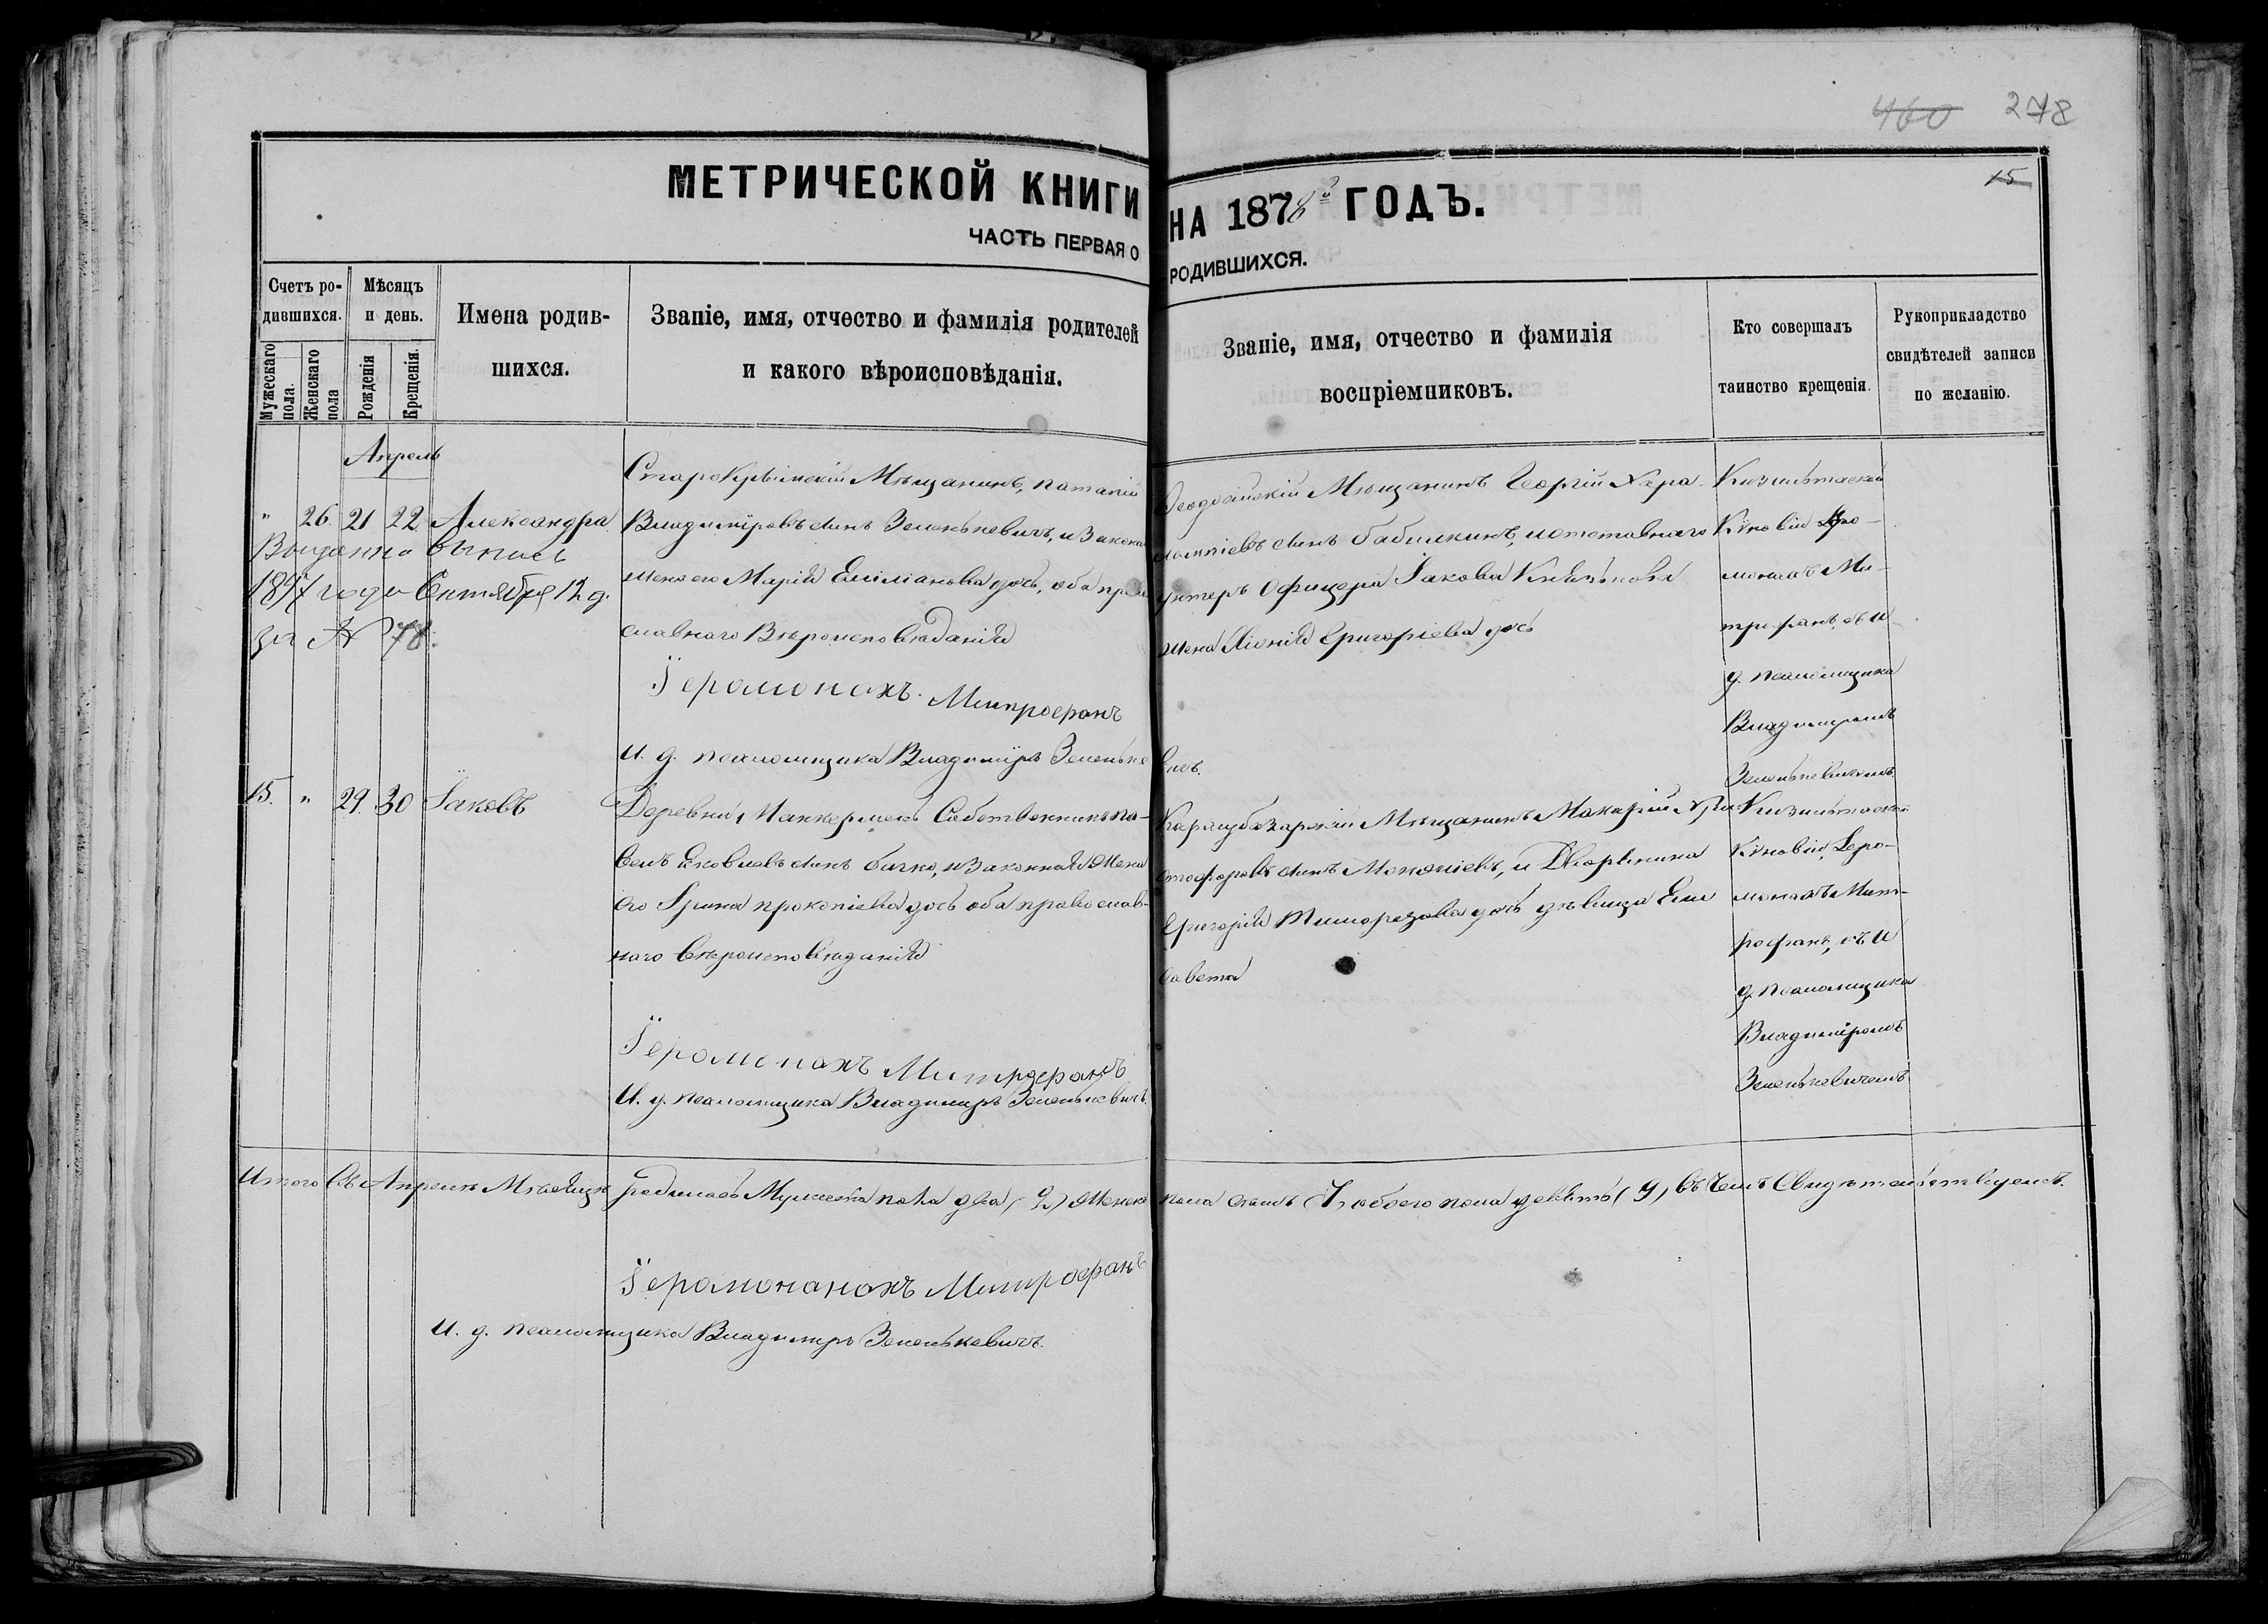 460 278
15
МЕТРИЧЕСКОЙ КНИГИ НА 1878й ГОДЪ.
ЧАСТЬ ПЕРВАЯ О РОДИВШИХСЯ.
Счетъ ро-
дившихся.
Мужескаго пола.
Женскаго пола
Мѣсяцъ
и день.
Рожденія
Крещенія.
Имена родив-
шихся.
Званіе, имя, отчество и фамилія родителей
и какого вѣроисповѣданія.
Званіе, имя, отчество и фамилія
воспріемниковъ.
Кто совершалъ
таинство крещенія.
Рукоприкладство
свидѣтелей записи
по желанію.
Апрель
" 26. 21 22 Александра
Выданна выпись
1897 года Октября 12 д.
за № 78.
Старокрымскій Мѣщанинъ,
Владиміровъ сынъ Зеленькевичъ, и законая
жена его Марія Емиліанова дочь, оба право
славнаго Вѣроисповѣданія
Іеромонахъ Митрофанъ
И. д. псаломщика Владиміръ Зеленькевичъ.
Ѳеодосійскій Мѣщанинъ Георгій Хара-
лампіевъ сынъ Бабилкинъ, и отставнаго
унтеръ Офицера Іакова
жена Григоріева дочь
Кизилташской
Киновіи Іеро-
монахъ Ми-
трофанъ, съ И
д. псаломщика
Владиміромъ
Зеленькевичемъ
15. " 29. 30 Іаковъ
Деревни Собственникъ Па-
велъ Яковлевъ сынъ Бичко, и законная жена
его Ирина Прокопіева дочь оба православ-
наго Вѣроисповѣданія
Іеромонахъ Митрофанъ
И. д. псаломщика Владимиръ Зеленькевичъ.
Карасубазарскій Мѣщанинъ Макарій Хри-
стофоровъ сынъ и Дворянина
Григорія дочь дѣвица Ели
савета
Кизилташской
Киновіи, Іеро-
монахъ Мит-
рофанъ, съ И
д. псаломщика
Владиміромъ
Зеленькевичемъ
Итого Въ Апрелѣ Мѣсяцѣ родилось Мужеска пола два (2) Женска пола семь 7, обоего пола девять (9) Въ чемъ Свидѣтельствуемъ.
Іеромонанахъ Митрофанъ
И. д. псаломщика Владимиръ Зеленькевичъ.